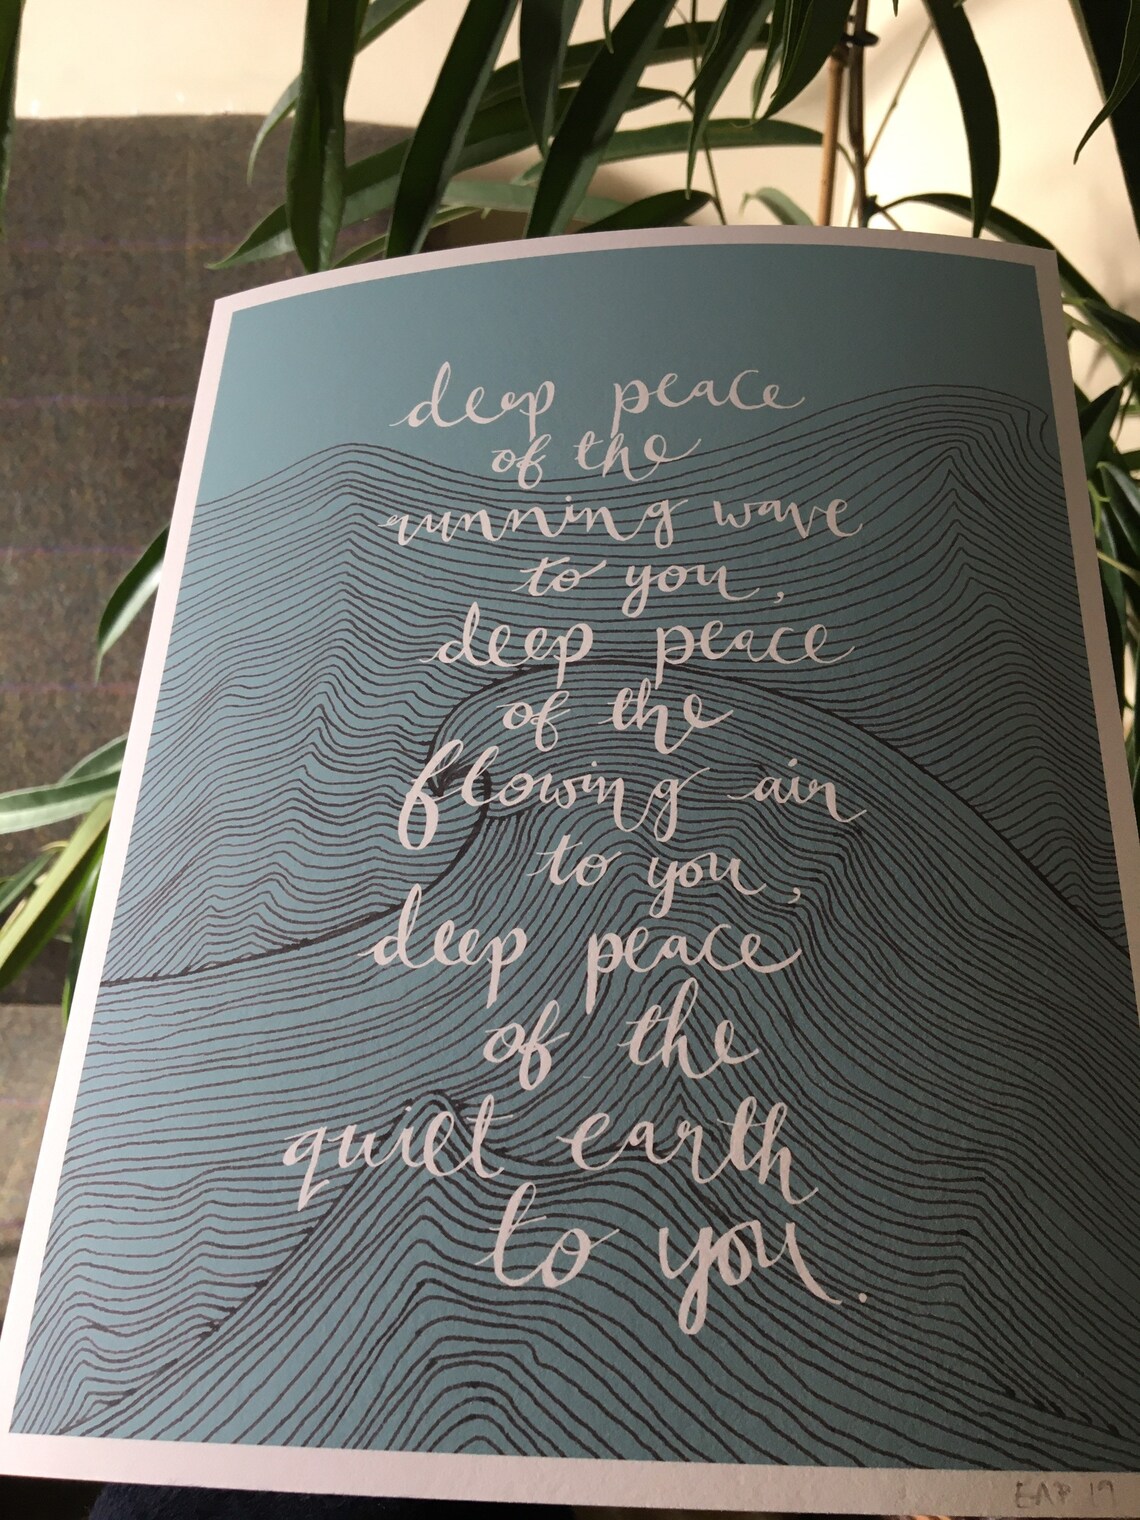 deep peace
of the
running wave
to you,
deep peace
of the
flowing air
to you,
deep peace
of the
quiet earth
to you.
EAP 19